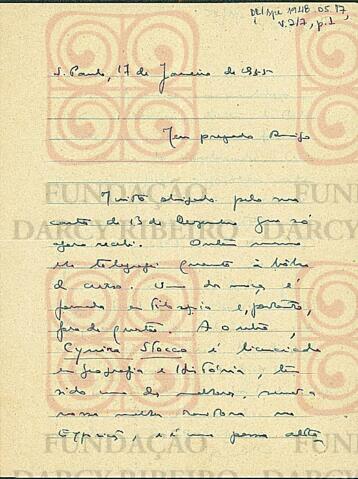 S. Paulo, 17 de Janeiro de 1955
Meu prezado Amigo
Muito obrigado pela sua
carta de 13 de Dezembro que só
agora recebi. Ontem mesmo
lhe telegrafei quanto à bolsa
de curso. Uma das moças é
formada em filosofia e, portanto,
fora de questão. A outra,
Cynira Stocco é licenciada
em geografia e História, tem
sido uma das melhores,
nossa melhor na
e é uma pessoa
FUNDAÇÃO
DARCY RIBEIRO